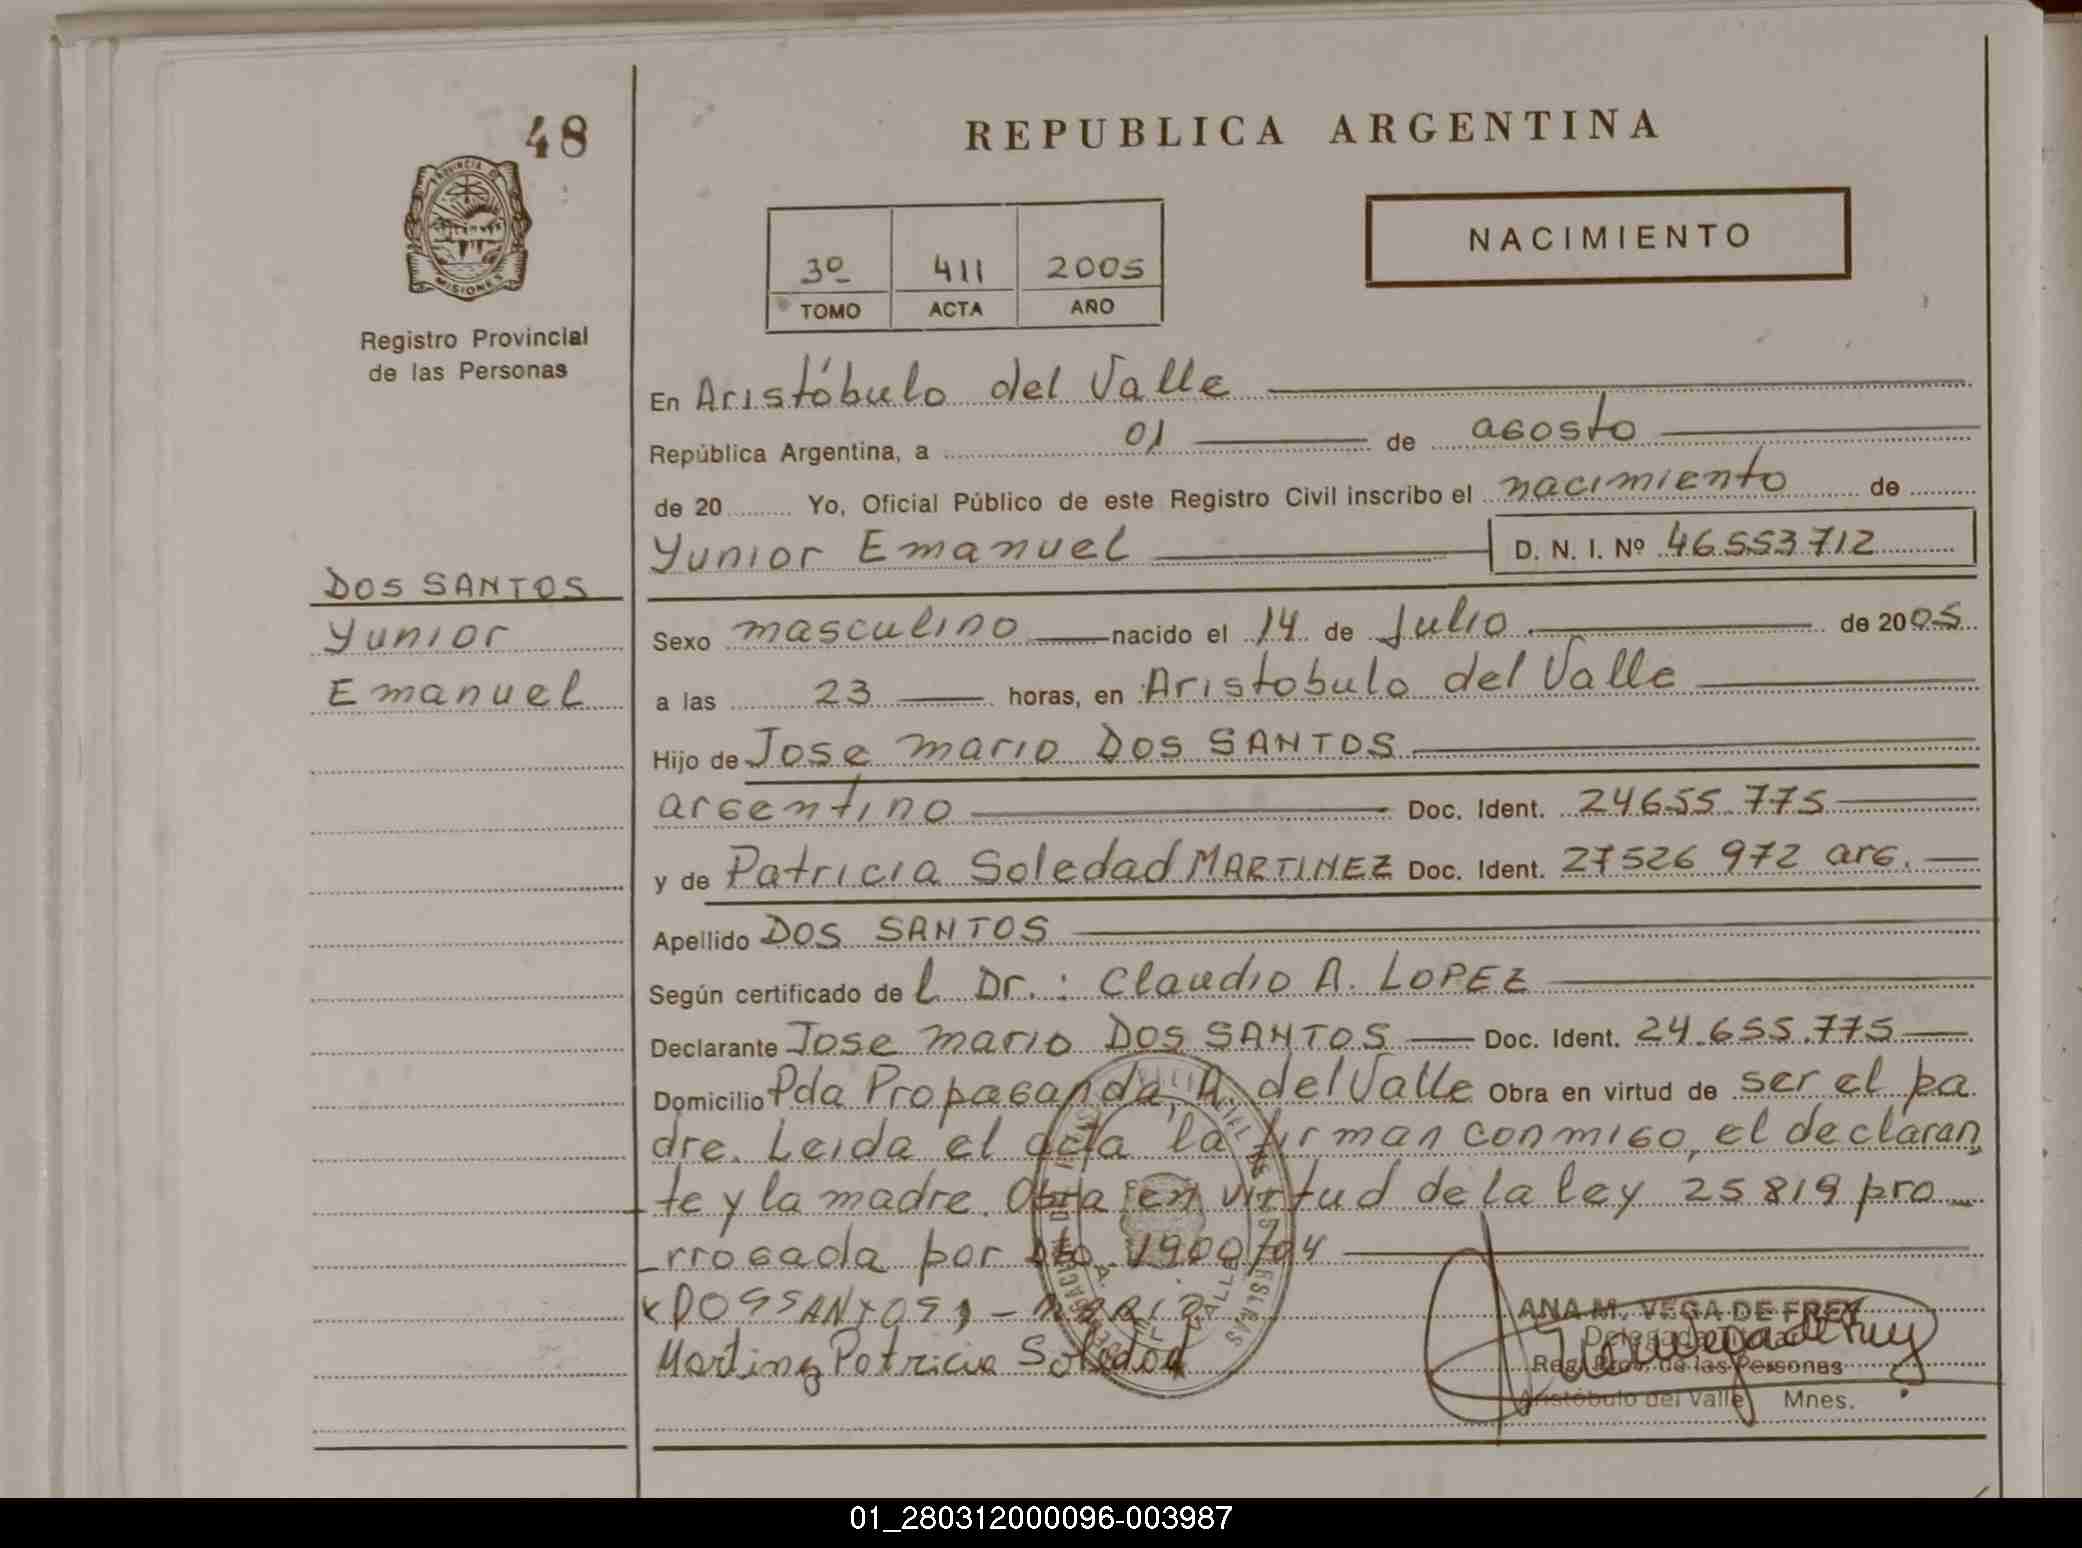 48
REPUBLICA ARGENTINA
PROVINCIA DE
MISIONES
3º 411 2005
TOMO ACTA AÑO
NACIMIENTO
Registro Provincial
de las Personas
En Aristóbulo del Valle
República Argentina, a 01 de agosto
de 20 Yo, Oficial Público de este Registro Civil inscribo el nacimiento de
Yunior Emanuel D. N. I. Nº 46.553.712
DOS SANTOS
Yunior
Emanuel
Sexo masculino nacido el 14 de Julio de 2005
a las 23 horas, en Aristobulo del Valle
Hijo de Jose mario DOS SANTOS
argentino Doc. Ident. 24.655.775
y de Patricia Soledad MARTINEZ Doc. Ident. 27526 972 arg.
Apellido DOS SANTOS
Según certificado de l Dr.: Claudio A. LOPEZ
Declarante Jose mario DOS SANTOS Doc. Ident. 24.655.775
Domicilio Pda Propaganda, A. del Valle Obra en virtud de ser el pa
dre. Leida el acta la firman conmigo, el declaran
te y la madre. Obra en virtud de la ley 25819 pro_
_rrogada por dto. 1900/04
DOSSANTOS
Martinez Patricia Soledad
ANA M. VEGA DE FREY
Delegada
Reg. Prov. de las Personas
Aristóbulo del Valle Mnes.
01_280312000096-003987